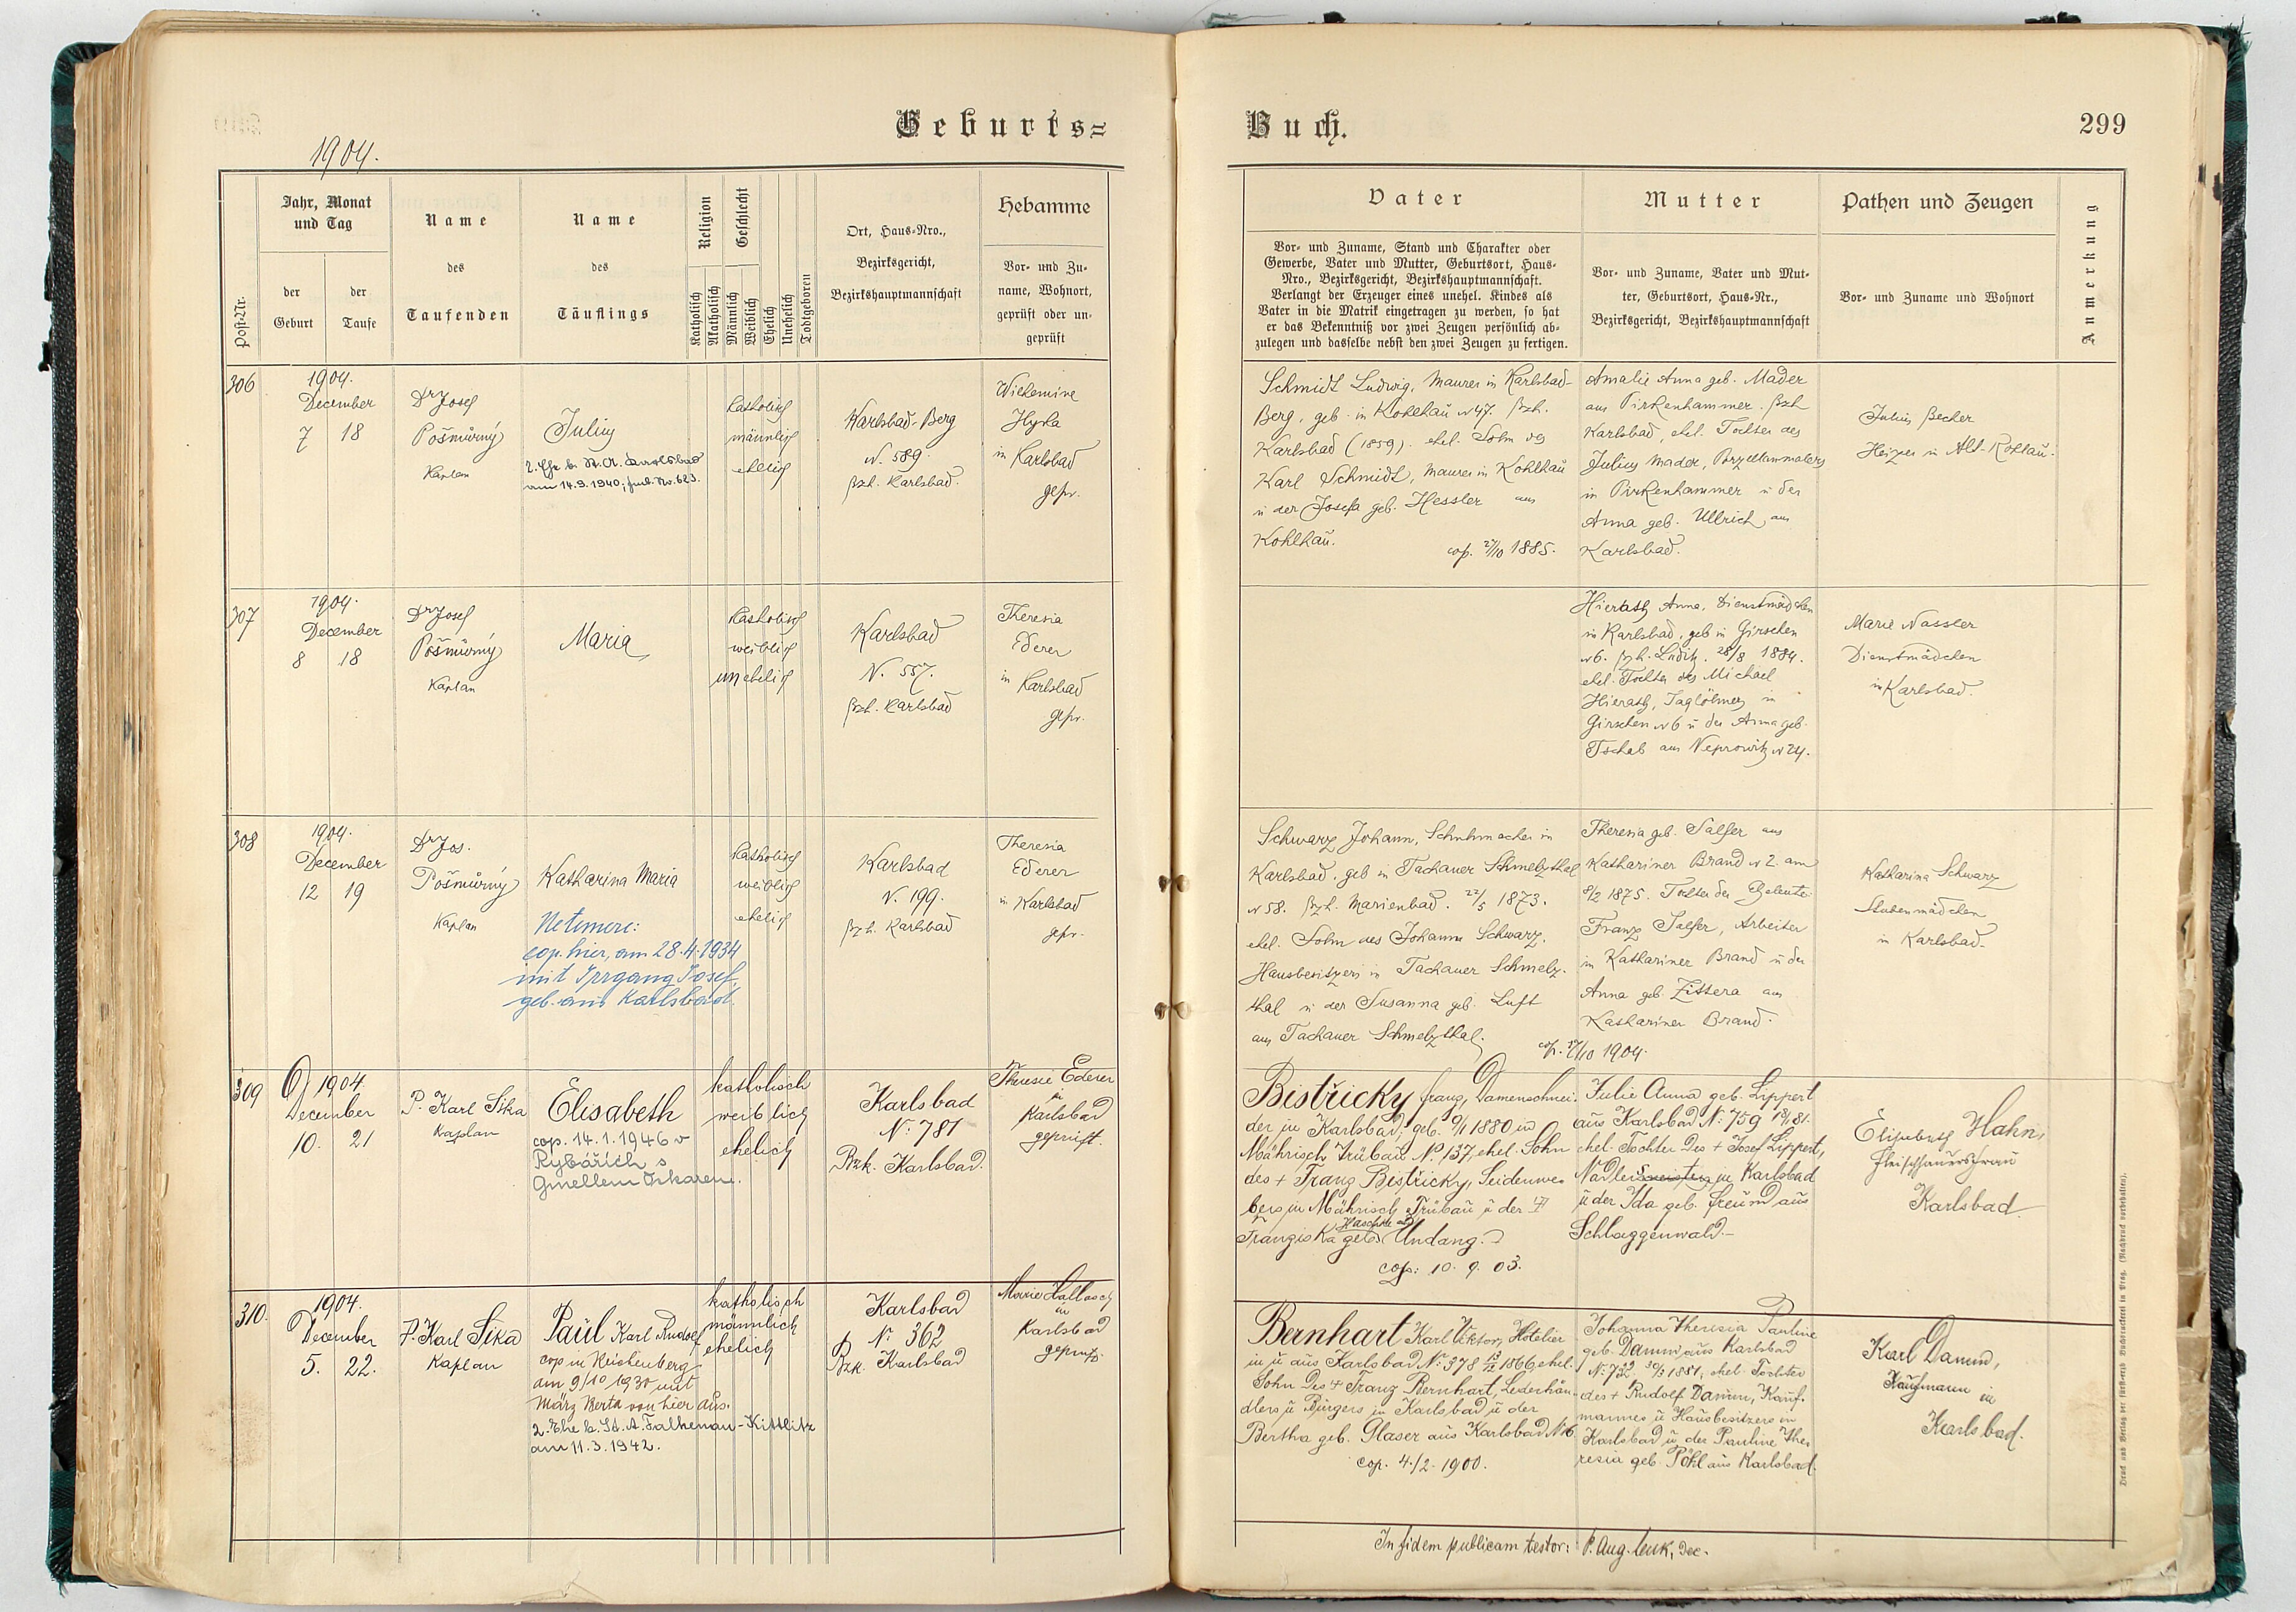 Geburts=
1904.
Post-Nr.
Jahr, Monat
und Tag
der
Geburt
der
Taufe
Name
des
Taufenden
Name
des
Täuflings
Religion
Geschlecht
Katholisch
Akatholisch
Männlich
Weiblich
Ehelich
Unehelich
Todtgeboren
Ort, Haus-Nro.,
Bezirksgericht,
Bezirkshauptmannschaft
Hebamme
Vor- und Zu-
name, Wohnort,
geprüft oder un-
geprüft
306
1904.
December
7 18
Dr Josef
Pošmůrný
Kaplan
Julius
2. Ehe b. St. A. Karlsbad
am 14.9.1940; Fmb. No. 623.
katholisch
männlich
ehelich
Karlsbad-Berg
N. 589.
Bzh. Karlsbad.
Wilhemine
Hyka
in Karlsbad
gepr.
307
1904.
December
8 18
Dr Josef
Pošmůrný
Kaplan
Maria
katholisch
weiblich
unehelich
Karlsbad
N. 557.
Bzh. Karlsbad
Theresia
Ederer
in Karlsbad
gepr.
308
1904.
December
12 19
Dr Jos.
Pošmůrný
Kaplan
Katharina Maria
Netemere:
cop. hier, am 28.4.1934
mit Irrgang Josef,
geb. aus Karlsbad.
katholisch
weiblich
ehelich
Karlsbad
N. 199.
Bzh. Karlsbad
Theresia
Ederer
in Karlsbad
gepr.
309
1904.
December
10. 21
P. Karl Sika
Kaplan
Elisabeth
cop. 14.1.1946 v
Rybářích s
Gmellem Oskarem.
katholisch
weiblich
ehelich
Karlsbad
N: 781
Bzk. Karlsbad.
Theresie Ederer
in
Karlsbad
geprüft.
310.
1904.
December
5. 22.
P. Karl Sika
Kaplan
Paul Karl Rudolf
cop. in Reichenberg
am 9/10 1930 mit
März Berta von hier aus.
2. Ehe b. St. A. Falkenau-Kittlitz
am 11.3.1942.
katholisch
männlich
ehelich
Karlsbad
N: 362
Bzk. Karlsbad
Marie Hallasch
in
Karlsbad
geprüft.
Buch.
299
Vater
Vor- und Zuname, Stand und Charakter oder
Gewerbe, Vater und Mutter, Geburtsort, Haus-
Nro., Bezirksgericht, Bezirkshauptmannschaft.
Verlangt der Erzeuger eines unehel. Kindes als
Vater in die Matrik eingetragen zu werden, so hat
er das Bekenntniß vor zwei Zeugen persönlich ab-
zulegen und dasselbe nebst den zwei Zeugen zu fertigen.
Mutter
Vor- und Zuname, Vater und Mut-
ter, Geburtsort, Haus-Nr.,
Bezirksgericht, Bezirkshauptmannschaft
Pathen und Zeugen
Vor- und Zuname und Wohnort
Anmerkung
Schmidt Ludwig, Maurer in Karlsbad-
Berg, geb. in Kohlhau N 47. Bzh.
Karlsbad (1859). ehel. Sohn des
Karl Schmidt, Maurer in Kohlhau
u der Josefa geb. Hessler aus
Kohlhau.
cop. 27/10 1885.
Amalie Anna geb. Mader
aus Pirkenhammer. Bzh
Karlsbad, ehel. Tochter des
Julius Mader, Porzellanmalers
in Pirkenhammer u der
Anna geb. Ullrich aus
Karlsbad.
Julius Becher
Heizer in Alt-Rohlau.
Hierath Anna, Dienstmädchen
in Karlsbad, geb in Girschen
N 6. Bzh. Luditz. 28/8 1884.
ehel. Tochter des Michael
Hierath, Taglöhner in
Girschen N 6 u der Anna geb.
Tschab aus Neprowitz N 24.
Marie Nassler
Dienstmädchen
in Karlsbad.
Schwarz Johann, Schuhmacher in
Karlsbad, geb in Tachauer Schmelzthal
N 58. Bzh. Marienbad. 22/5 1873.
ehel. Sohn des Johann Schwarz,
Hausbesitzers in Tachauer Schmelz-
thal u der Susanna geb. Luft
aus Tachauer Schmelzthal.
cop. 17/10 1904.
Theresia geb. Salfer aus
Kathariner Brand N 2. am
8/2 1875. Tochter der Eheleute
Franz Salfer, Arbeiter
in Kathariner Brand u der
Anna geb. Zittera aus
Kathariner Brand.
Katharina Schwarz
Stubenmädchen
in Karlsbad.
Bistřicky Franz, Damenschnei-
der in Karlsbad, geb. 9/1 1880 in
Mährisch Trübau N. 137, ehel. Sohn
des + Franz Bistřicky, Seidenwe-
bers in Mährisch Trübau u der
Franziska geb. Undang.
Haschke
cop: 10. 9. 03.
Julie Anna geb. Lippert
aus Karlsbad N: 759 18/1 81.
ehel. Tochter des + Josef Lippert,
Nadler in Karlsbad
u der Ida geb. Freund aus
Schlaggenwald.-
Elisabeth Hahn,
Fleischhauersfrau
Karlsbad.
Bernhart Karl Viktor, Hotelier
in u aus Karlsbad N: 378 1866 ehel.
Sohn des + Franz Bernhart, Lederhän-
dlers u Bürgers in Karlsbad u der
Bertha geb. Glaser aus Karlsbad N 16.
cop. 4./2. 1900.
Johanna Theresia Pauline
geb. Damm, aus Karlsbad
1881, ehel. Tochter
des + Rudolf Damm, Kauf-
mannes u Hausbesitzers in
Karlsbad u der Pauline The-
resia geb. Pöhl aus Karlsbad.
Karl Damm,
Kaufmann in
Karlsbad.
In fidem publicam testor: P. Aug. Cenk, Dec.
Druck und Verlag der fürst-erzb. Buchdruckerei in Prag. (Nachdruck vorbehalten).